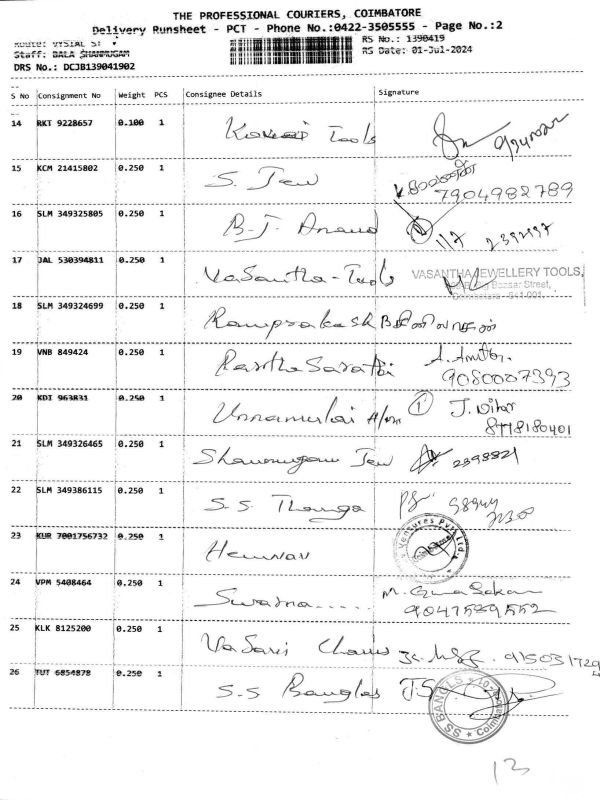 THE PROFESSIONAL COURIERS, COIMBATORE
Delivery Runsheet - PCT - Phone No.:0422-3505555 - Page No.:2
Route: VYSIAL ST
RS No.: 1390419
Staff: BALA SHANMUGAM
RS Date: 01-Jul-2024
DRS No.: DCJB139041902
S No Consignment No Weight PCS Consignee Details Signature
14 RKT 9228657 0.100 1 Tools
15 KCM 21415802 0.250 1 S. Jew
7904982789
16 SLM 349325805 0.250 1 B.J. Anand
117 2392997
17 JAL 530394811 0.250 1 Vasantha-Tools VASANTHA JEWELLERY TOOLS,
Bazaar Street,
Coimbatore - 641 001.
18 SLM 349324699 0.250 1 Ramprakash B
19 VNB 849424 0.250 1 Partha Sarathi
9080007393
20 KDI 963831 0.250 1 Unnamulai 1 J.
8778180401
21 SLM 349326465 0.250 1 Shanmugam Jew 2398821
22 SLM 349386115 0.250 1 S.S. Thanga
23 KUR 7001756732 0.250 1 Ventures Pvt Ltd
24 VPM 5408464 0.250 1 Swarna..... M. Guna Sekar
9047589552
25 KLK 8125200 0.250 1 Vasavi
26 TUT 6854878 0.250 1 S.S Bangles
SS BANGLS Coimbatore
13